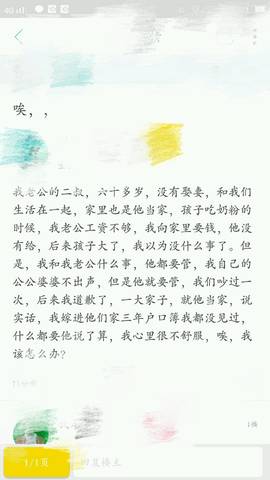 4G
唉，，
我老公的二叔，六十多岁，没有娶妻，和我们
生活在一起，家里也是他当家，孩子吃奶粉的
时候，我老公工资不够，我向家里要钱，他没
有给，后来孩子大了，我以为没什么事了。但
是，我和我老公什么事，他都要管，我自己的
公公婆婆不出声，但是他就要管，我们吵过一
次，后来我道歉了，一大家子，就他当家，说
实话，我嫁进他们家三年户口薄我都没见过，
什么都要他说了算，我心里很不舒服，唉，我
该怎么办？
1楼
1/1页
回复楼主